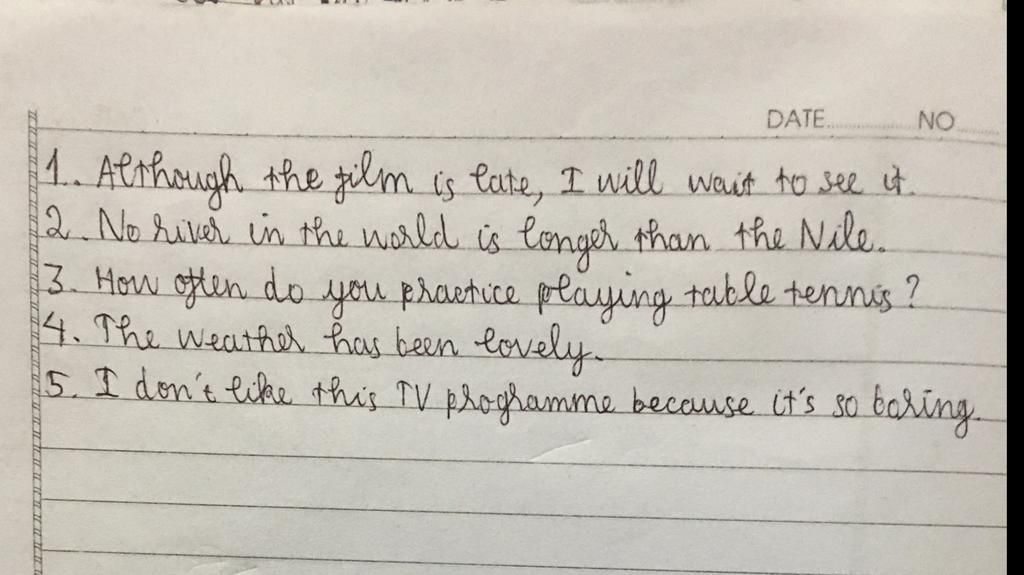 DATE............... NO.........
1. Although the film is late, I will wait to see it.
2. No river in the world is longer than the Nile.
3. How often do you practice playing table tennis?
4. The weather has been lovely.
5. I don't like this TV programme because it's so boring.